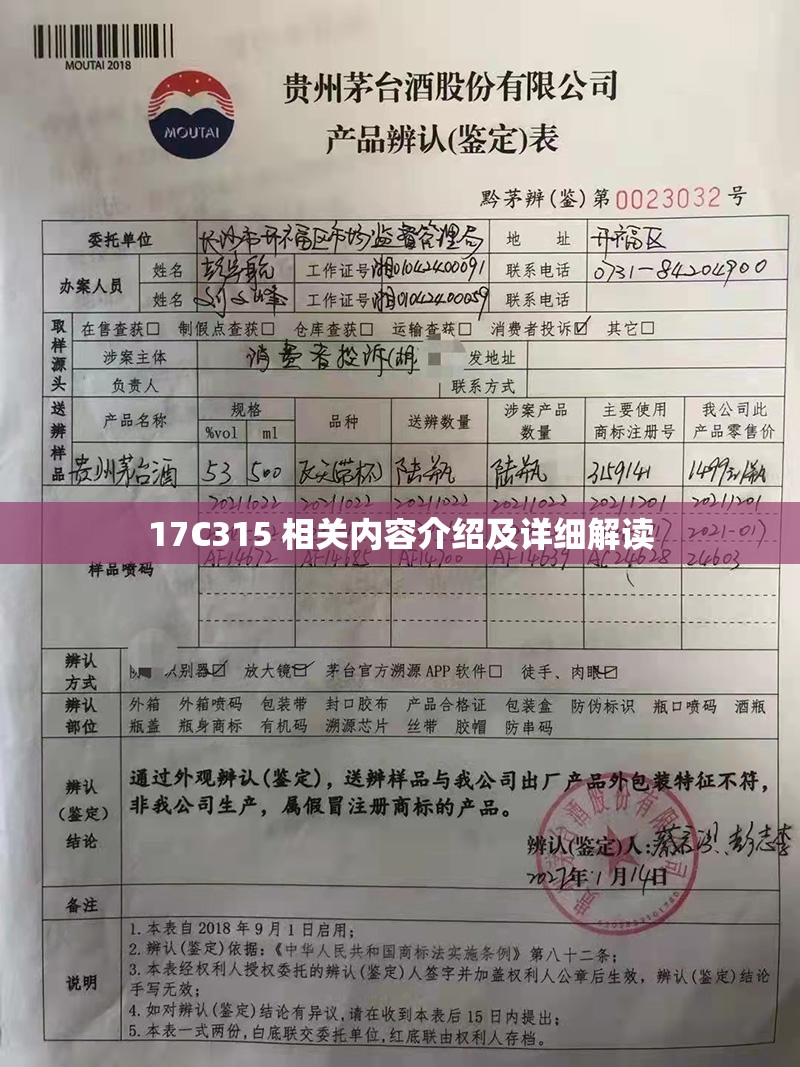 MOUTAI 2018
MOUTAI
贵州茅台酒股份有限公司
产品辨认(鉴定)表
黔茅辨(鉴)第0023032号
委托单位 长沙市开福区市场监督管理局 地 址 开福区
办案人员 姓名 工作证号 湘01042400091 联系电话 0731-84204900
姓名 工作证号 湘01042400059 联系电话
取样源头 在售查获□ 制假点查获□ 仓库查获□ 运输查获□ 消费者投诉☑ 其它□
涉案主体 消费者投诉(湖 发地址
负责人 联系方式
送辨样品 产品名称 规格 %vol ml 品种 送辨数量 涉案产品数量 主要使用商标注册号 我公司此产品零售价
贵州茅台酒 53 500 瓦天(带杯) 陆瓶 陆瓶 3159141 1499元/瓶
20211022 20211022 20211022 20211022 20211201 20211201
17C315 相关内容介绍及详细解读
2021-017
样品喷码 AF14672 AF14685 AF14700 AF14639 AC24628 24603
辨认方式 别器☑ 放大镜☑ 茅台官方溯源APP软件□ 徒手、肉眼☑
辨认部位 外箱 外箱喷码 包装带 封口胶布 产品合格证 包装盒 防伪标识 瓶口喷码 酒瓶
瓶盖 瓶身商标 有机码 溯源芯片 丝带 胶帽 防串码
辨认(鉴定)结论 通过外观辨认(鉴定)，送辨样品与我公司出厂产品外包装特征不符，
非我公司生产，属假冒注册商标的产品。
辨认(鉴定)人:
2022年1月14日
备注
说明 1.本表自2018年9月1日启用；
2.辨认(鉴定)依据：《中华人民共和国商标法实施条例》第八十二条；
3.本表经权利人授权委托的辨认(鉴定)人签字并加盖权利人公章后生效，辨认(鉴定)结论
手写无效；
4.如对辨认(鉴定)结论有异议，请在收到本表后15日内提出；
5.本表一式两份，白底联交委托单位，红底联由权利人存档。